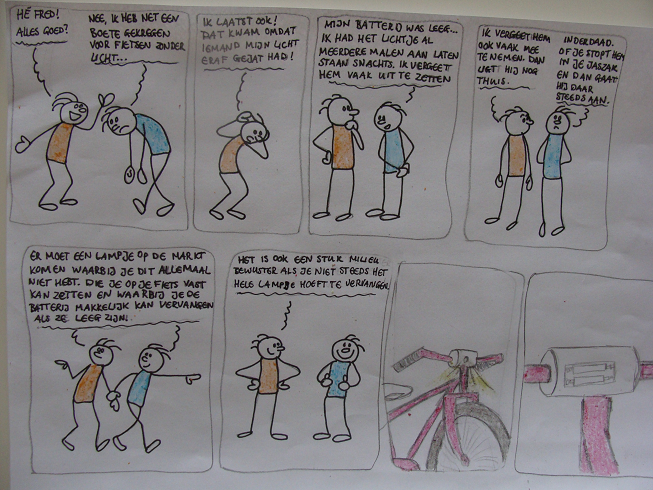 HÉ FRED!
ALLES GOED?
NEE, IK HEB NET EEN
BOETE GEKREGEN
VOOR FIETSEN ZONDER
LICHT...
IK LAATST OOK!
DAT KWAM OMDAT
IEMAND MIJN LICHT
ERAF GEJAT HAD!
MIJN BATTERIJ WAS LEEG...
IK HAD HET LICHTJE AL
MEERDERE MALEN AAN LATEN
STAAN SNACHTS. IK VERGEET
HEM VAAK UIT TE ZETTEN
IK VERGEET HEM
OOK VAAK MEE
TE NEMEN. DAN
LIGT HIJ NOG
THUIS.
INDERDAAD.
OF JE STOPT HEM
IN JE JASZAK
EN DAN GAAT
HIJ DAAR
STEEDS AAN.
ER MOET EEN LAMPJE OP DE MARKT
KOMEN WAARBIJ JE DIT ALLEMAAL
NIET HEBT. DIE JE OP JE FIETS VAST
KAN ZETTEN EN WAARBIJ JE DE
BATTERIJ MAKKELIJK KAN VERVANGEN
ALS ZE LEEG ZIJN!
HET IS OOK EEN STUK MILIEU
BEWUSTER ALS JE NIET STEEDS HET
HELE LAMPJE HOEFT TE VERVANGEN